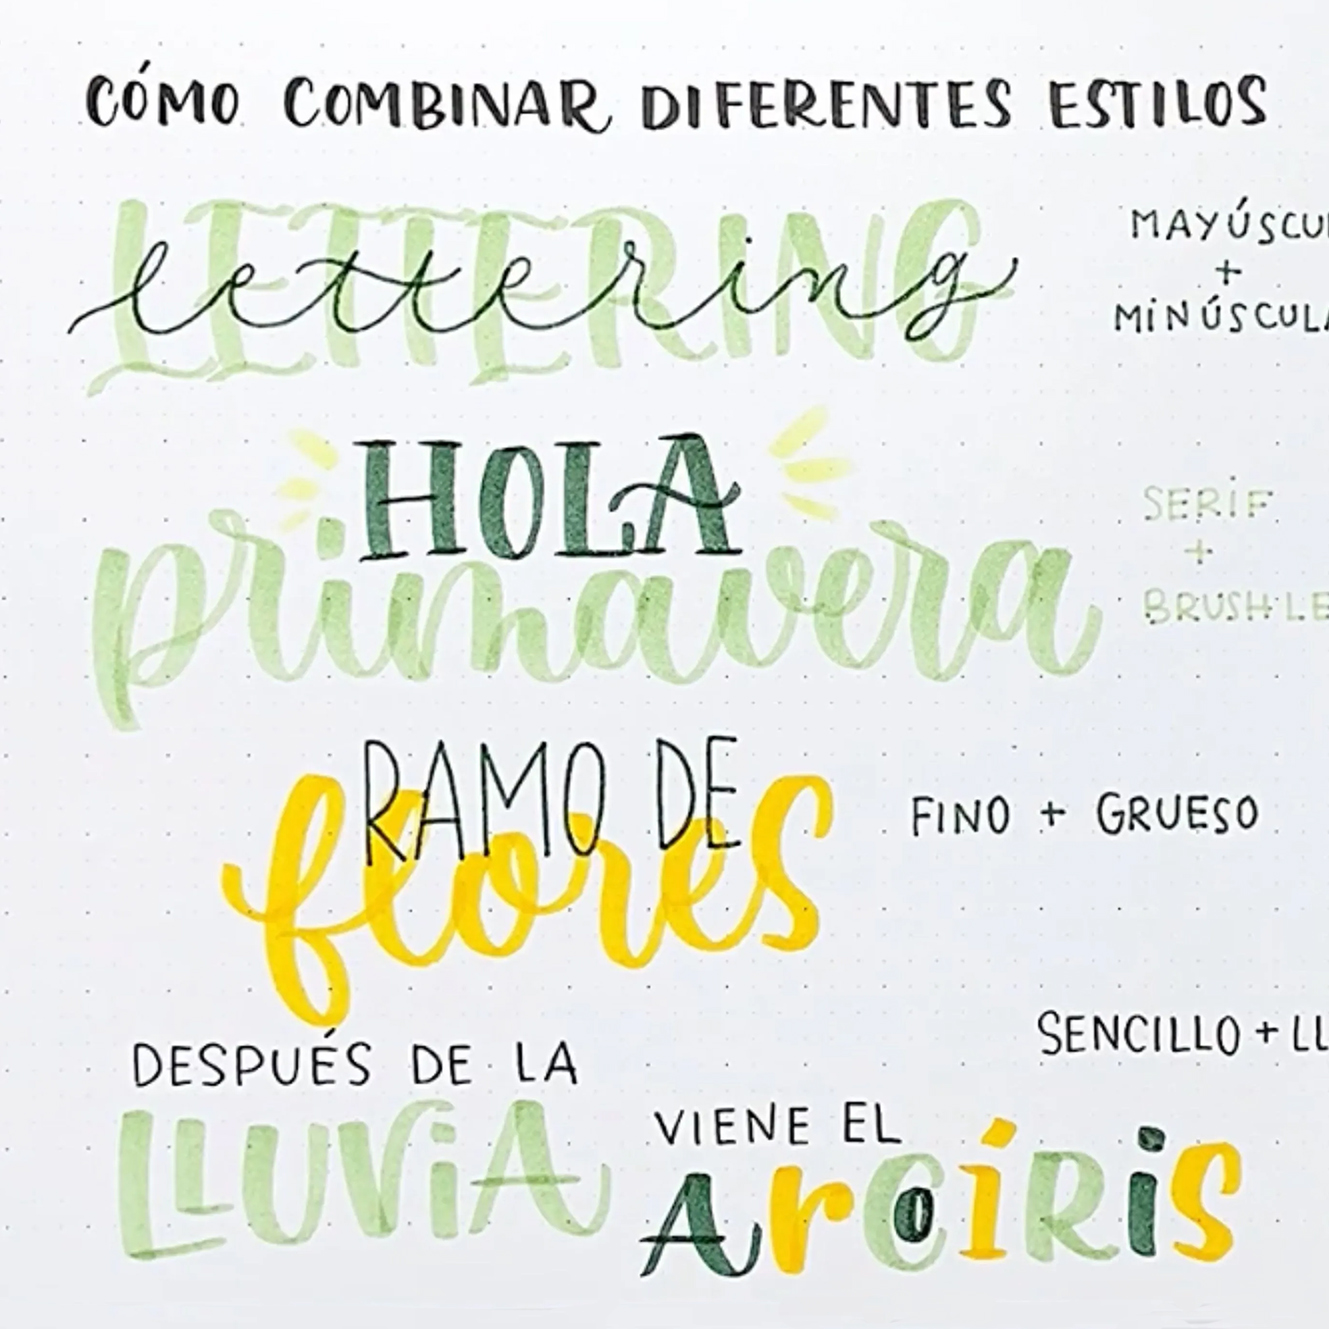 CÓMO COMBINAR DIFERENTES ESTILOS
LETTERING
lettering
MAYÚSCU
+
MINÚSCULA
HOLA
primavera
SERIF
+
BRUSH LE
RAMO DE
flores
FINO + GRUESO
SENCILLO + LL
DESPUÉS DE LA
LLUViA
VIENE EL
ArCoíRiS